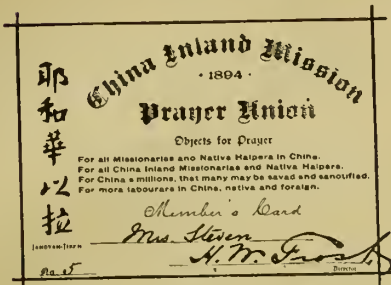 耶和華以拉
China Inland Mission
· 1894 ·
Prayer Union
Objects for Prayer
For all Missionaries and Native Helpers in China.
For all China Inland Missionaries and Native Helpers.
For China's millions, that many may be saved and sanctified.
For more labourers in China, native and foreign.
Member's Card
Mrs. Steven
H. W. Frost
Director
No 5